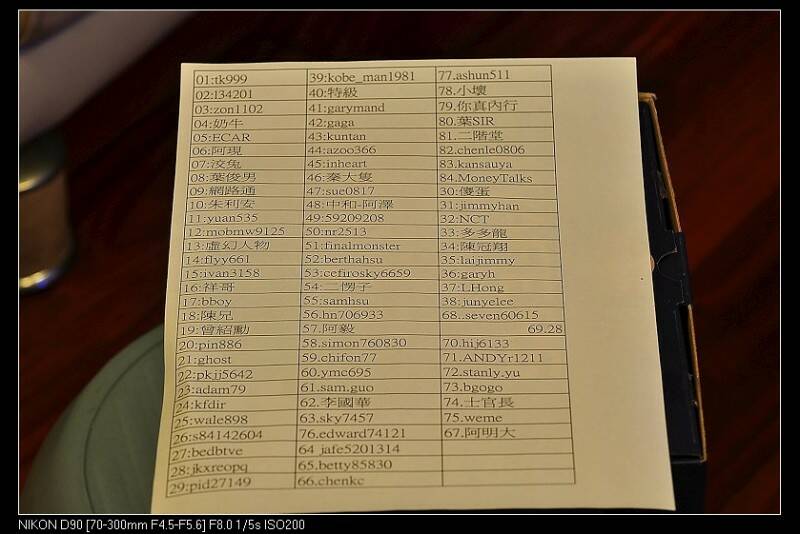 01:tk999
02:l34201
03:zon1102
04:奶牛
05:ECAR
06:阿現
07:浚兔
08:葉俊男
09:網路通
10:朱利安
11:yuan535
12:mobmw9125
13:虛幻人物
14:flyy661
15:ivan3158
16:祥哥
17:bboy
18:陳兄
19:曾紹勳
20:pin886
21:ghost
22:pkjj5642
23:adam79
24:kfdir
25:wale898
26:s84142604
27:bedbtve
28:jkxreopq
29:pid27149
39:kobe_man1981
40:特級
41:garymand
42:gaga
43:kuntan
44:azoo366
45:inheart
46:秦大隻
47:sue0817
48:中和-阿澤
49:59209208
50:nr2513
51:finalmonster
52:berthahsu
53:cefirosky6659
54:二愣子
55:samhsu
56.hn706933
57.阿毅
58.simon760830
59.chifon77
60.ymc695
61.sam.guo
62.李國華
63.sky7457
76.edward74121
64 jafe5201314
65.betty85830
66.chenkc
77.ashun511
78.小壞
79.你真內行
80.葉SIR
81.二階堂
82.chenle0806
83.kansauya
84.MoneyTalks
30:傻蛋
31:jimmyhan
32:NCT
33:多多龍
34:陳冠翔
35:laijimmy
36:garyh
37:LHong
38:junyelee
68..seven60615
69.28
70.hij6133
71.ANDYr1211
72.stanly.yu
73.bgogo
74.士官長
75.weme
67.阿明大
NIKON D90 [70-300mm F4.5-F5.6] F8.0 1/5s ISO200